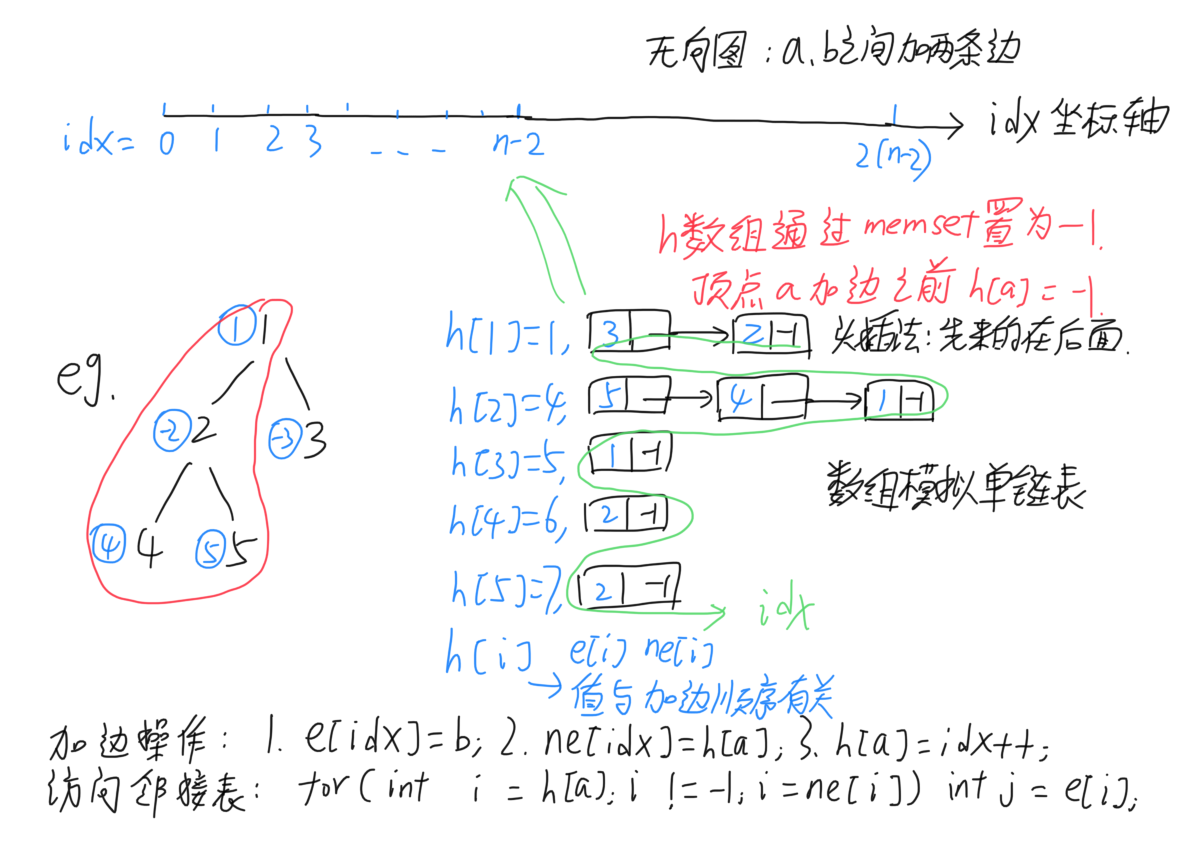 无向图：a、b之间加两条边
idx= 0 1 2 3 - - - n-2 2(n-2) idx 坐标轴
h数组通过memset置为-1.
顶点a加边之前h[a]=-1.
eg.
① 1
-2 2 -3 3
④ 4 ⑤ 5
h[1]=1, 3 2 -1 头插法：先来的在后面.
h[2]=4, 5 4 1 -1
h[3]=5, 1 -1
数组模拟单链表
h[4]=6, 2 -1
h[5]=7, 2 -1
idx
h[i] e[i] ne[i]
→值与加边顺序有关
加边操作：1. e[idx]=b; 2. ne[idx]=h[a]; 3. h[a]=idx++;
访问邻接表：for(int i=h[a]; i!=-1; i=ne[i]) int j=e[i];